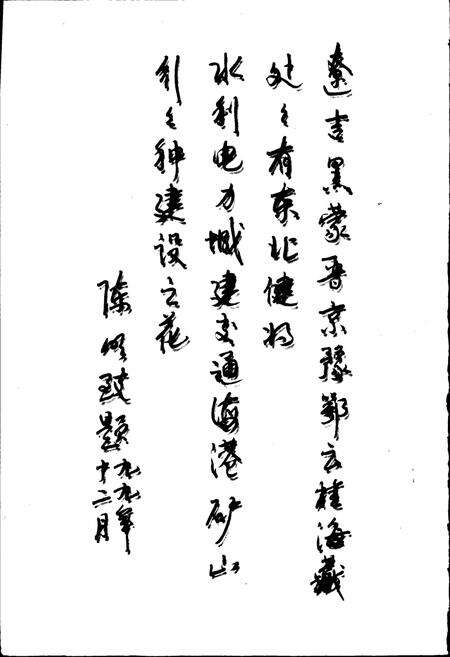 遼吉黑蒙晋京豫鄂云桂海藏
处々有东北健将
水利电力城建交通海港矿山
行々种建设之花
陈明 题
九九年
十二月